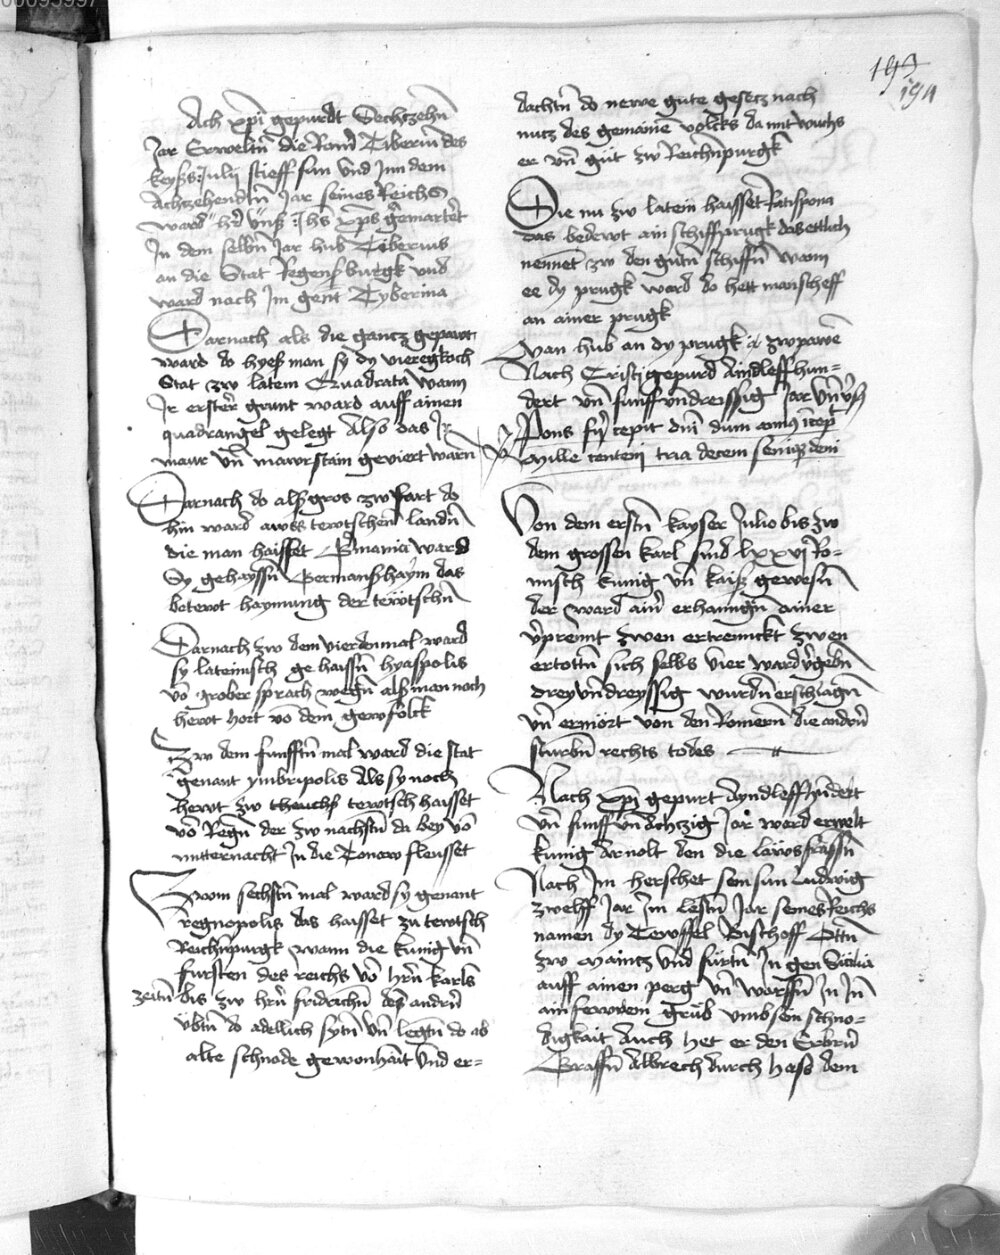 00095997
193
194
Ach xpi gepurdt Sechtzehn
Jar Erweltn die Romer Tiberiu des
keyss Julij stieff sun vnd Inn dem
Achtzehendtn Jar seines Reichs
ward her vnss Jhs xps gemartert
In dem selbn Jar hub Tiberius
an die Stat Regenspurgk vnd
ward nach Im gent Tyberina
Darnach als die gantz gepawt
ward do hyess man sy dy vieregkoch
Stat zw latein Quadrata wann
Ir erster grunt ward auff ainen
quadrangel gelegt Also das Ir
mawr vn mawrstain geviert warn
Darnach do alss gros zwfart do
hin ward awss tewtschen landn
die man haisset Germania ward
Sy gehayssn Germansshaym das
betewt haymung der tewtschn
Darnach zw dem vierdenmal ward
sy lateinisch gehaissn hyaspolis
vo grober sprach wegn alss man noch
hewt hort vo dem gewfolck
Zw dem funfftn mal ward die stat
genant ymbripolis Als sy noch
hewt zw thewchs tewtsch haisset
vo Regn der zw nachstn da bey vo
mitternacht In die Tonaw fleusset
Zwom sechstn mal ward sy genant
regnopolis das haisset zu tewtsch
Reichnpurgk wann die kunig vn
fursten des reichs vo hern karls
zeitn bis zw hrn fridrichn des andrn
vbtn do adellich sytn vn legtn do ab
alte schnode gewonhait vnd er-
dachtn do newe gute gesetz nach
nutz des gemainen volcks da mit wuchs
er vn gut zw Reichnpurgk
Die nu zw latein haisset Ratispona
das bedewt ain schiffprugk das ettlich
nennet zw den gutn schiffn wann
ee dy prugk ward do hett man scheff
an ainer prugk
Man hub an dy prugk zw pawen
Nach Cristi gepurd Aindleff hun-
dert vn funff vndreissig Jar vn vss
Pons cepit dni dum annus
Mille centeni tria decem semiqz deni
Von dem erstn kayser Julio bis zw
dem grossen karl sind lxxvi Ro-
misch kunig vn kaiss gewesn
der ward ainer erhanngn ainer
vprennt zwen ertrennckt zwen
ertottn sich selbs vier ward vgebn
drey vn dreyssig wurdn erschlagn
vn ermort von den Romern die andrn
sturbn rechts todes
Nach xpi gepurt Ayndleffhundert
vn funff vn Achtzig Jar ward erwelt
kunig Arnolt den die lawss frassn
Nach Im herschet sein sun Ludwig
zwelff Jar Im lestn Jar seines Reichs
namen dy Tewffel Bischoff Ottn
zw Maintz vnd furtn In gen Sicilia
auff ainen perg vn warffn In In
ain fewren grub vmb sein schno-
digkait Auch het er den Erbrn
Graffn Albrech durch hass dem